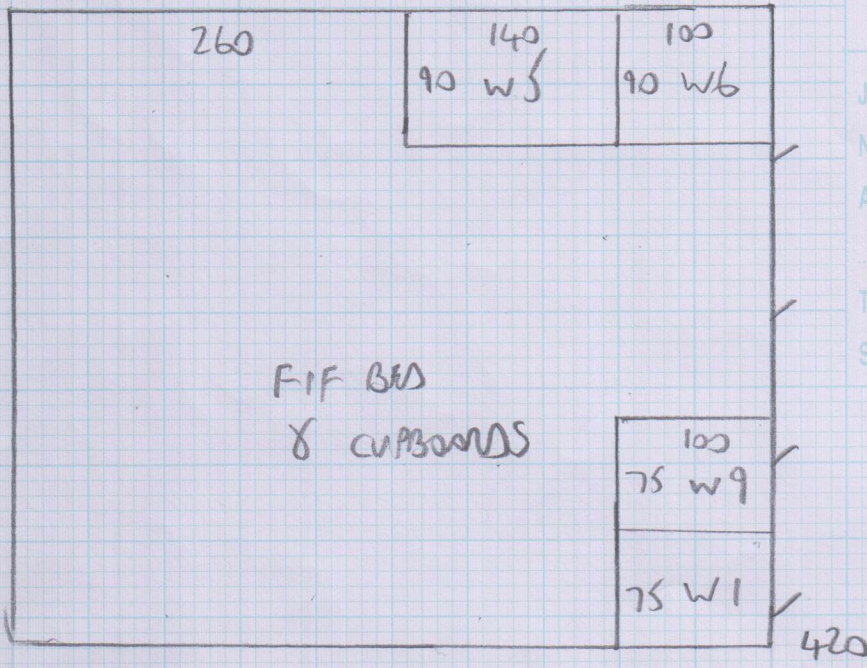 260 140 100
90 W5 90 W6
FIF BED
& CUPBOARDS
100
75 W9
75 W1
420